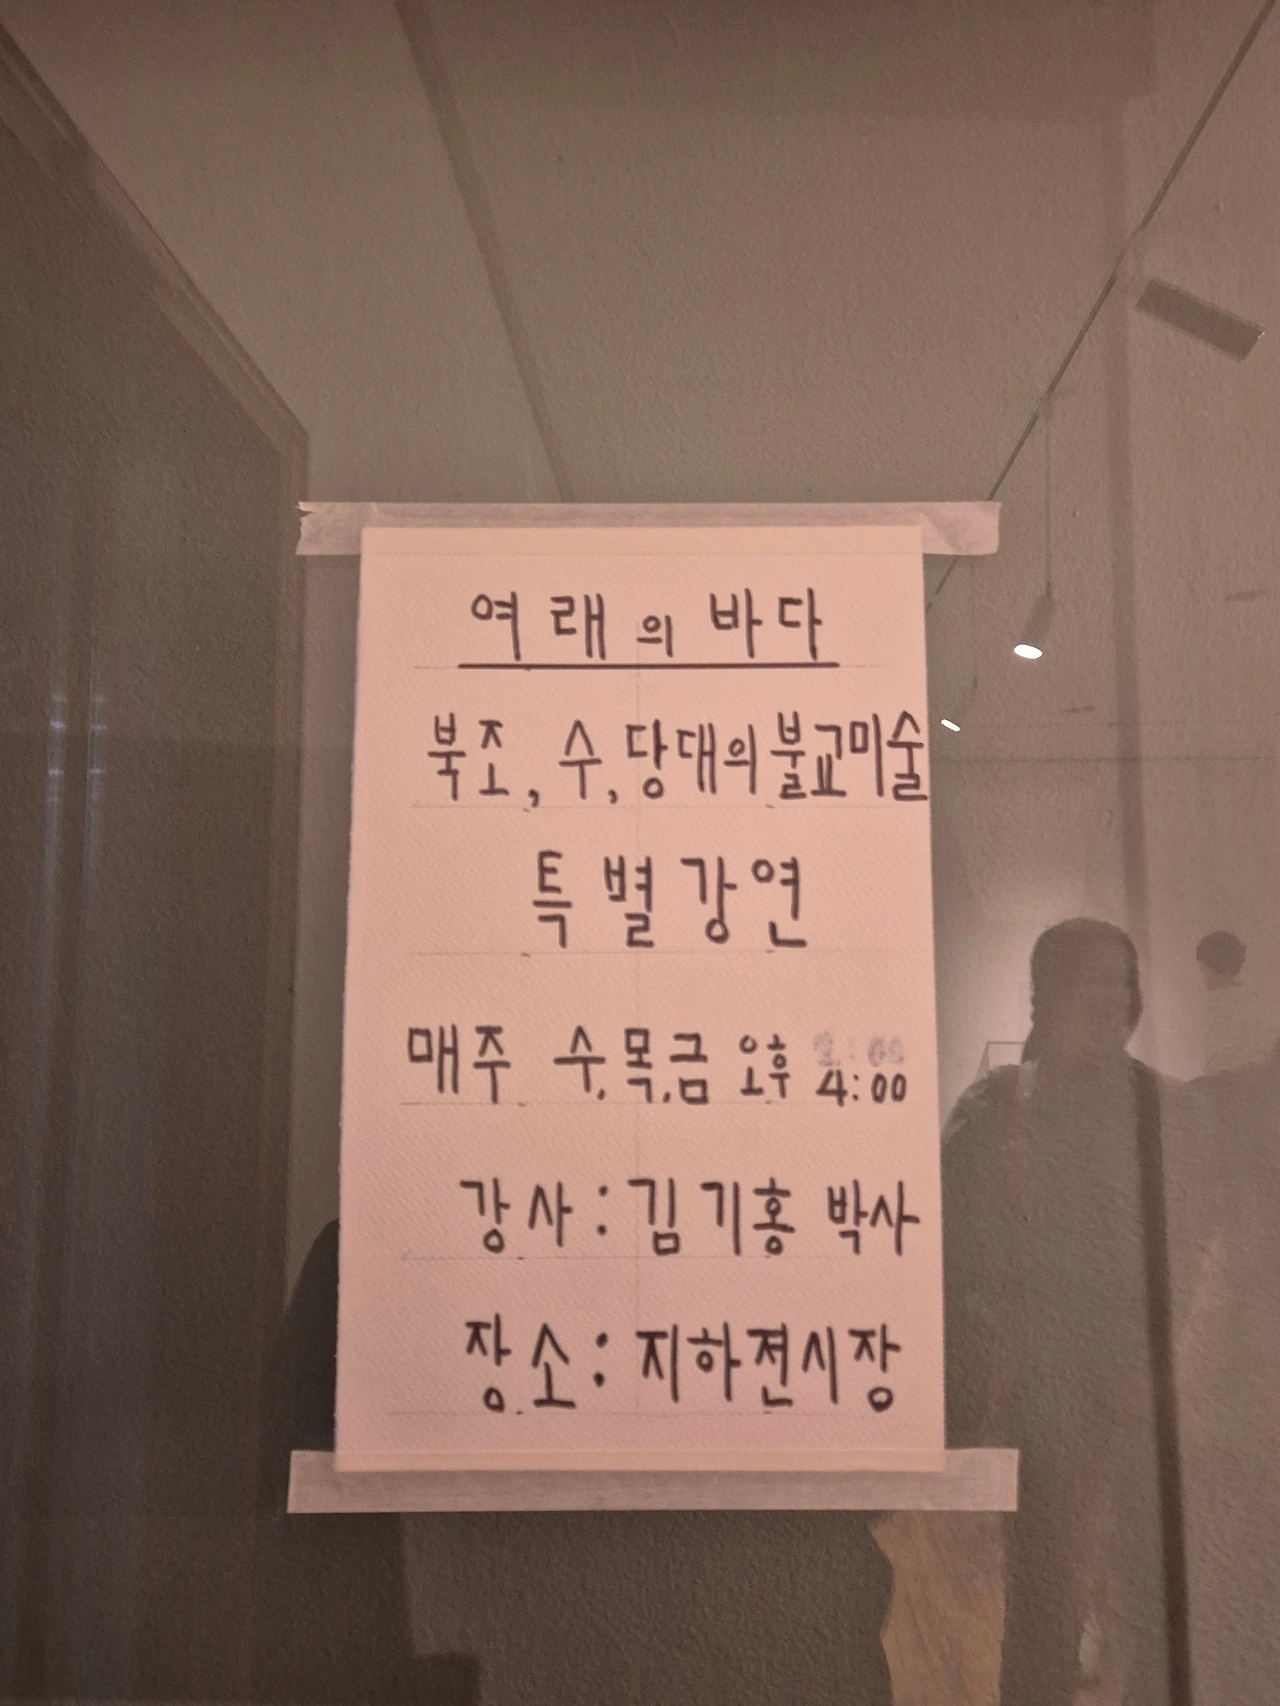 여래의 바다
북조, 수, 당대의 불교미술
특별강연
매주 수, 목, 금 오후 4:00
강사 : 김기홍 박사
장소 : 지하전시장